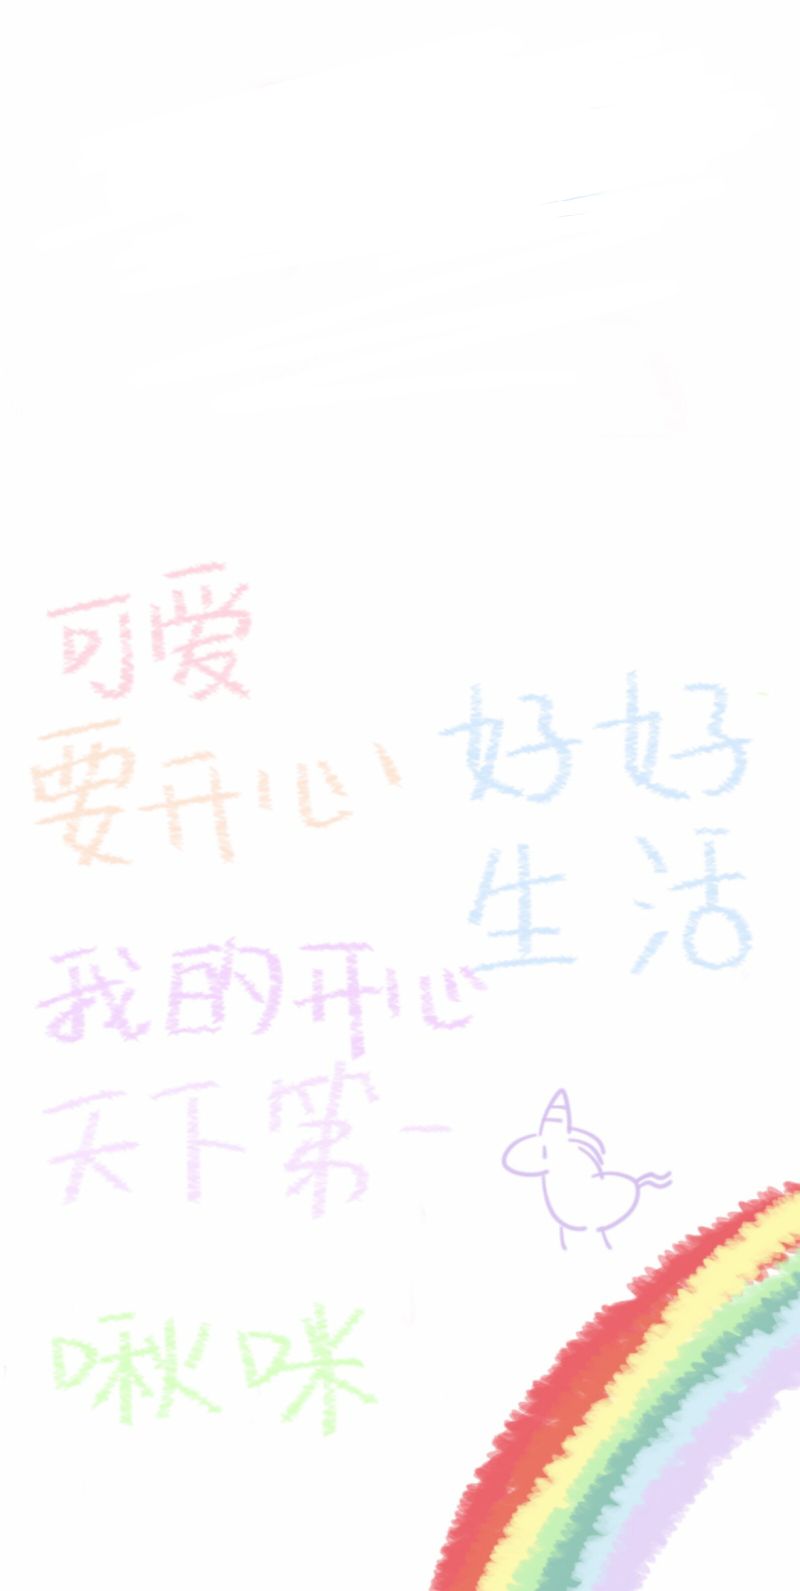 可爱
要开心
好好
生活
我的开心
天下第一
啾咪